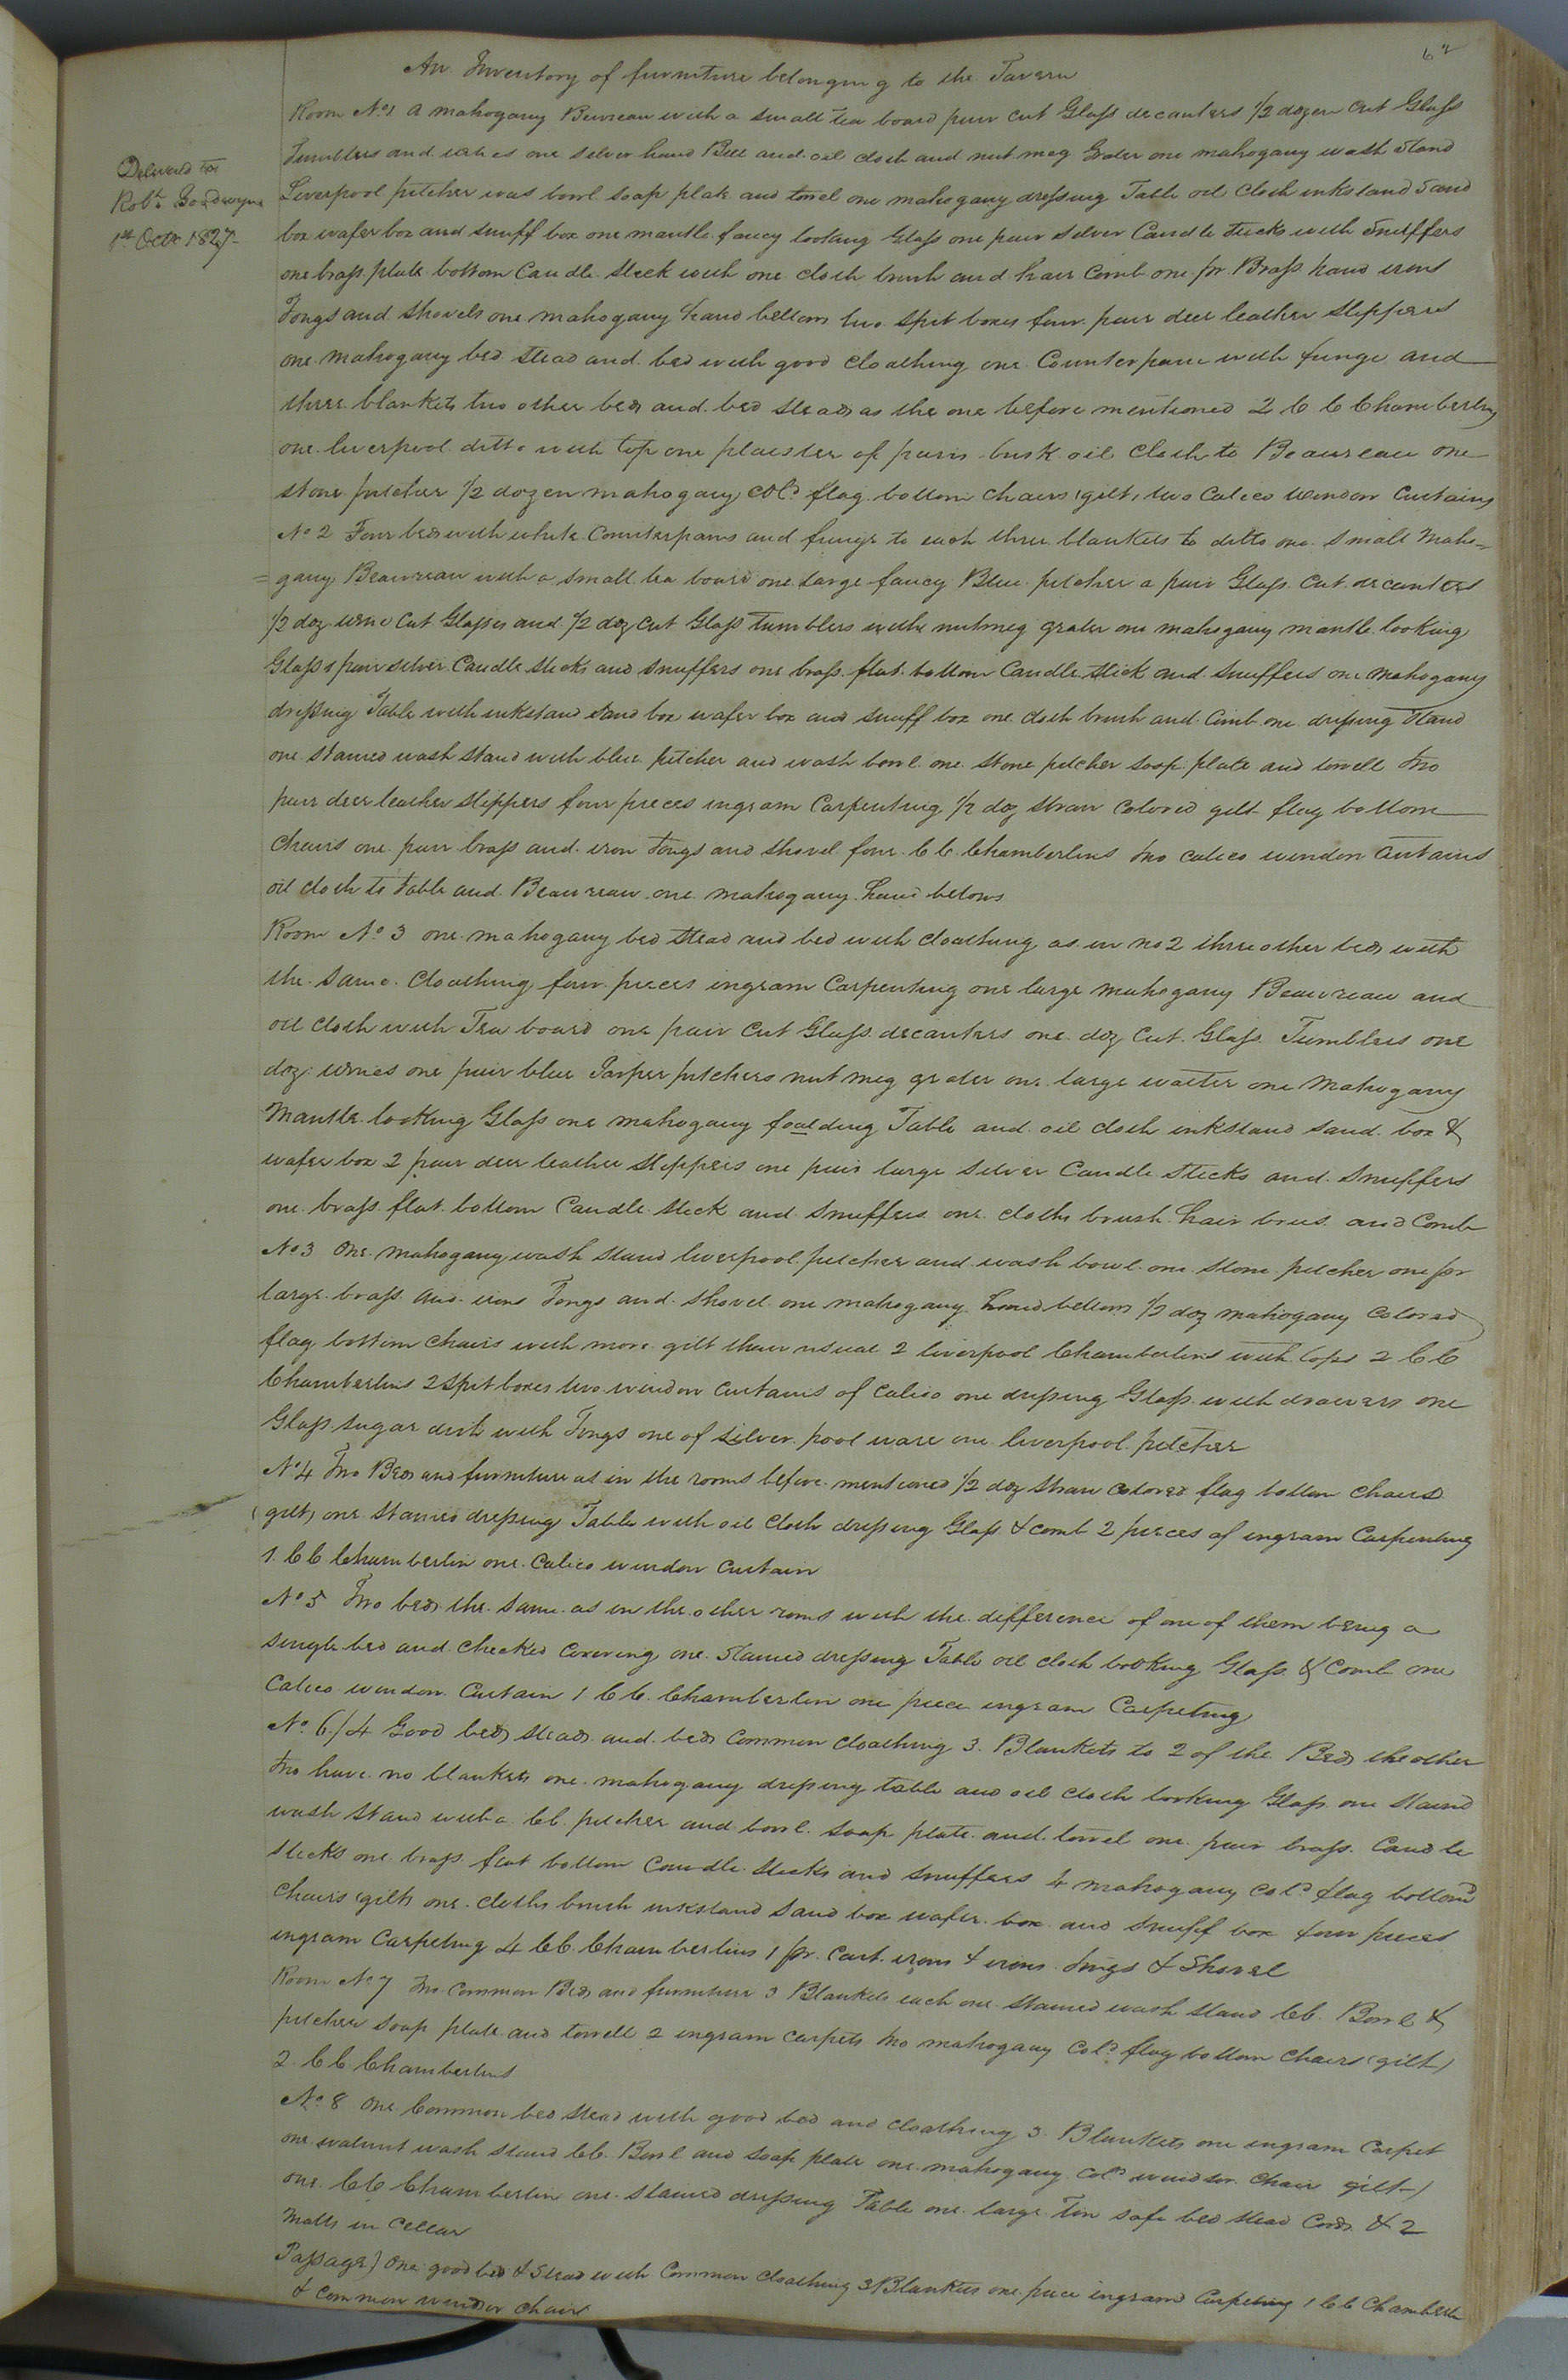 62
An Inventory of furniture belonging to the Tavern
Room No 1 a mahogany Beureau with a small tea board pair cut Glass decanters 1/2 dozen cut Glass
Tumblers and wines one silver hand Bell and oil cloth and nut meg Grater one mahogany wash Stand
Liverpool pitcher was bowl soap plate and towel one mahogany dressing Table oil cloth inkstand Sand
box wafer box and snuff box one mantle fancy looking Glass one pair silver Candle Sticks with Snuffers
one brass plate bottom Candle stick with one cloth brush and hair Comb one pr Brass hand irons
Tongs and Shovels one mahogany hand bellows two spit boxes four pair deer leather slippers
one mahogany bed stead and bed with good cloathing one Counterpane with fringe and
three blankets two other beds and bed steads as the one before mentioned 2 C C Chamberlins
one liverpool ditto with top one plaister of paris busk oil cloth to Beaureau one
stone pitcher 1/2 dozen mahogany cold flag bottom chairs (gilt) two Calico Window Curtains
Delivered to
Robt Goodwyn
1st Octr 1827
No 2 Four beds with white Counterpanes and fringe to each three blankets to ditto one small Maho=
=gany Beaureau with a small tea board one large fancy Blue pitcher a pair Glass Cut decanters
1/2 doz wine Cut Glasses and 1/2 doz cut Glass Tumblers nutmeg grater one mahogany mantle looking
Glass 1 pair silver Candle sticks and snuffers one brass flat bottom Candle stick and snuffers one mahogany
dressing Table with inkstand sand box wafer box and snuff box one cloth brush and Comb one dressing Stand
one stained wash stand with blue pitcher and wash bowl one stone pitcher soap plate and towell two
pair deer leather slippers four pieces ingram Carpenting 1/2 doz straw colored gilt flag bottom
chairs one pair brass and iron tongs and shovel four C C Chamberlins two calico window Curtains
oil cloth to table and Beaureau one mahogany hand belows
Room No 3 one mahogany bed stead and bed with cloathing as in no 2 three other beds with
the same Cloathing four pieces ingram Carpenting one large mahogany Beaureau and
oil cloth with Tea board one pair Cut Glass decanters one doz Cut Glass Tumblers one
doz wines one pair blue Jasper pitchers nut meg grater one large waiter one Mahogany
Mantle looking Glass one mahogany foalding Table and oil cloth inkstand sand box &
wafer box 2 pair deer leather slippers one pair large silver Candle Sticks and Snuffers
one brass flat bottom Candle stick and snuffers one cloths brush hair brus and Comb
No 3 one mahogany wash stand liverpool pitcher and wash bowl one stone pitcher one pr
large brass and irons Tongs and shovel one mahogany hand bellows 1/2 doz mahogany colored
flag bottom chairs with more gilt than usual 2 liverpool Chamberlins with tops 2 C C
Chamberlins 2 Spit boxes two window curtains of calico one dressing Glass with drawers one
Glass sugar dish with Tongs one of silver pool ware one liverpool pitcher
No 4 Two Beds and furniture as in the rooms before mentioned 1/2 doz straw colored flag bottom chairs
(gilt) one stained dressing Table with oil cloth dressing Glass & comb 2 pieces of ingram Carpenting
1 C C Chamberlin one Calico window curtain
No 5 Two beds the same as in the other rooms with the difference of one of them being a
single bed and checked covering one stained dressing Table oil cloth looking Glass & Comb one
Calico window Curtain 1 C C Chamberlin one piece ingram Carpeting
No 6 / 4 Good beds steads and beds Common cloathing 3 Blankets to 2 of the Beds the other
two have no blankets one mahogany dressing table and oil cloth looking Glass one staind
wash stand with a CC pitcher and bowl soap plate and towel one pair brass Candle
sticks one brass flat bottom Candle sticks and snuffers 4 mahogany cold flag bottomd
chairs (gilt) one cloths brush inkstand sand box wafer box and snuff box four pieces
ingram Carpeting 4 CC Chamberlins 1 pr Cast irons & irons tongs & Shovel
Room No 7 two Common Beds and furniture 3 Blankets each one stained wash stand CC Bowl &
pitcher soap plate and towell 2 ingram carpets two mahogany cold flag bottom chairs (gilt)
2 C C Chamberlins
No 8 One Common bed stead with good bed and cloathing 3 Blankets one ingram Carpet
one walnut wash stand CC Bowl and soap plate one mahogany cold windsor chair gilt)
one CC Chamberlin one stained dressing Table one large Tin safe bed stead Cords & 2
Matts in Cellar
Passage} One good bed & Stead with Common cloathing 3 Blankets one piece ingram Carpeting 1 C C Chamberlin
& Common windsor chair